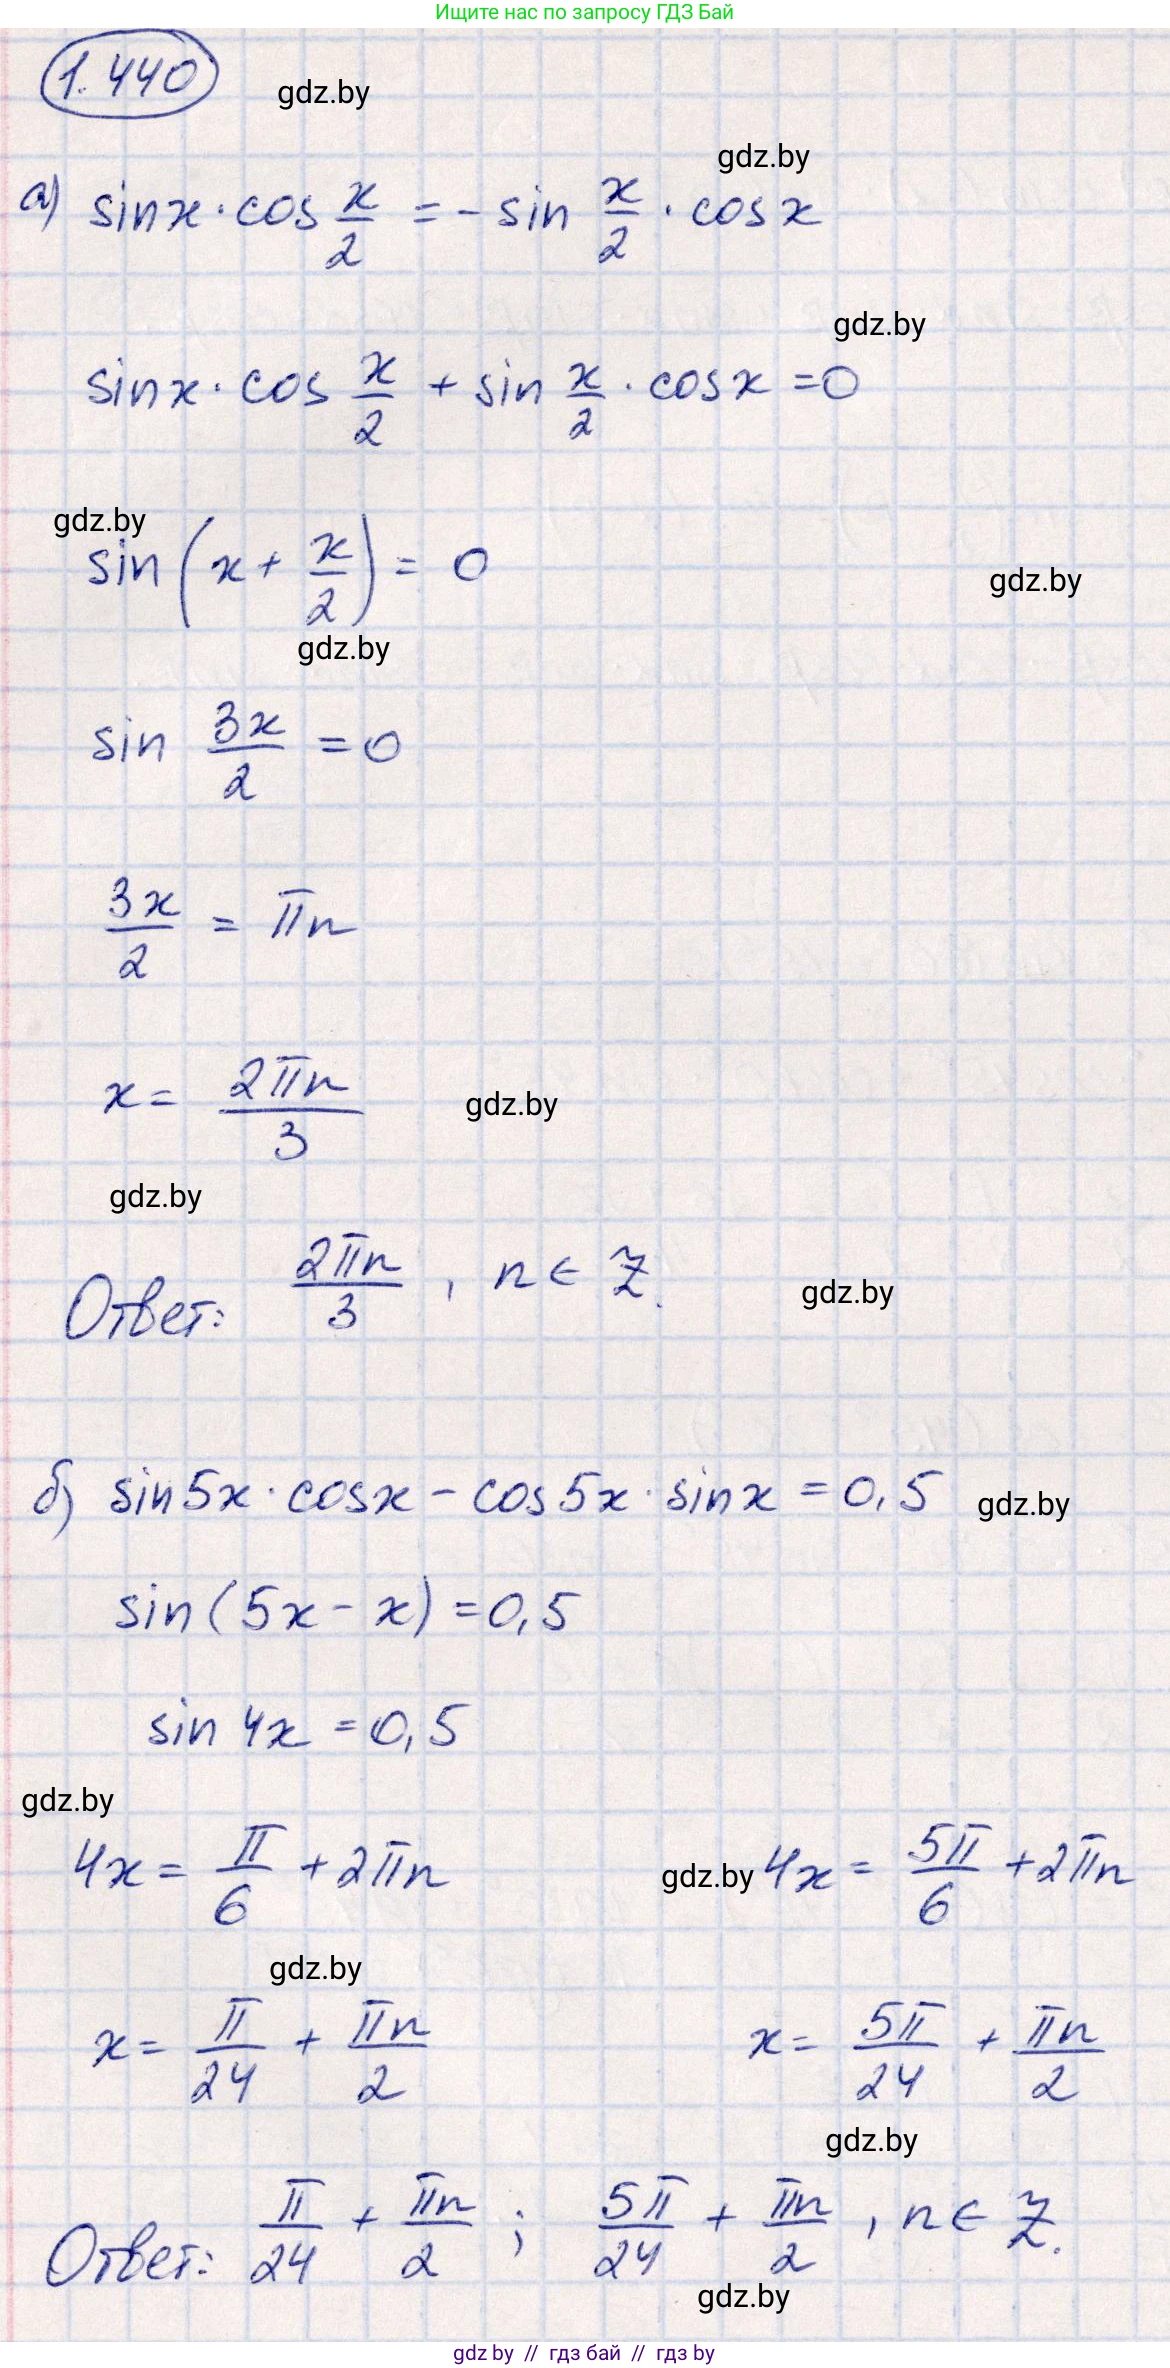 Ищите нас по запросу ГДЗ Бай
1.440
gdz.by
gdz.by
а) sinx · cos x/2 = - sin x/2 · cosx
gdz.by
sinx · cos x/2 + sin x/2 · cosx = 0
gdz.by
sin (x + x/2) = 0
gdz.by
gdz.by
sin 3x/2 = 0
3x/2 = πn
x = 2πn/3
gdz.by
gdz.by
Ответ: 2πn/3 , n ∈ Z.
gdz.by
б) sin5x · cosx - cos5x · sinx = 0,5
gdz.by
sin(5x - x) = 0,5
sin 4x = 0,5
gdz.by
4x = π/6 + 2πn gdz.by 4x = 5π/6 + 2πn
gdz.by
x = π/24 + πn/2 x = 5π/24 + πn/2
gdz.by
Ответ: π/24 + πn/2 ; 5π/24 + πn/2 , n ∈ Z.
gdz.by
gdz.by // гдз бай // гдз by